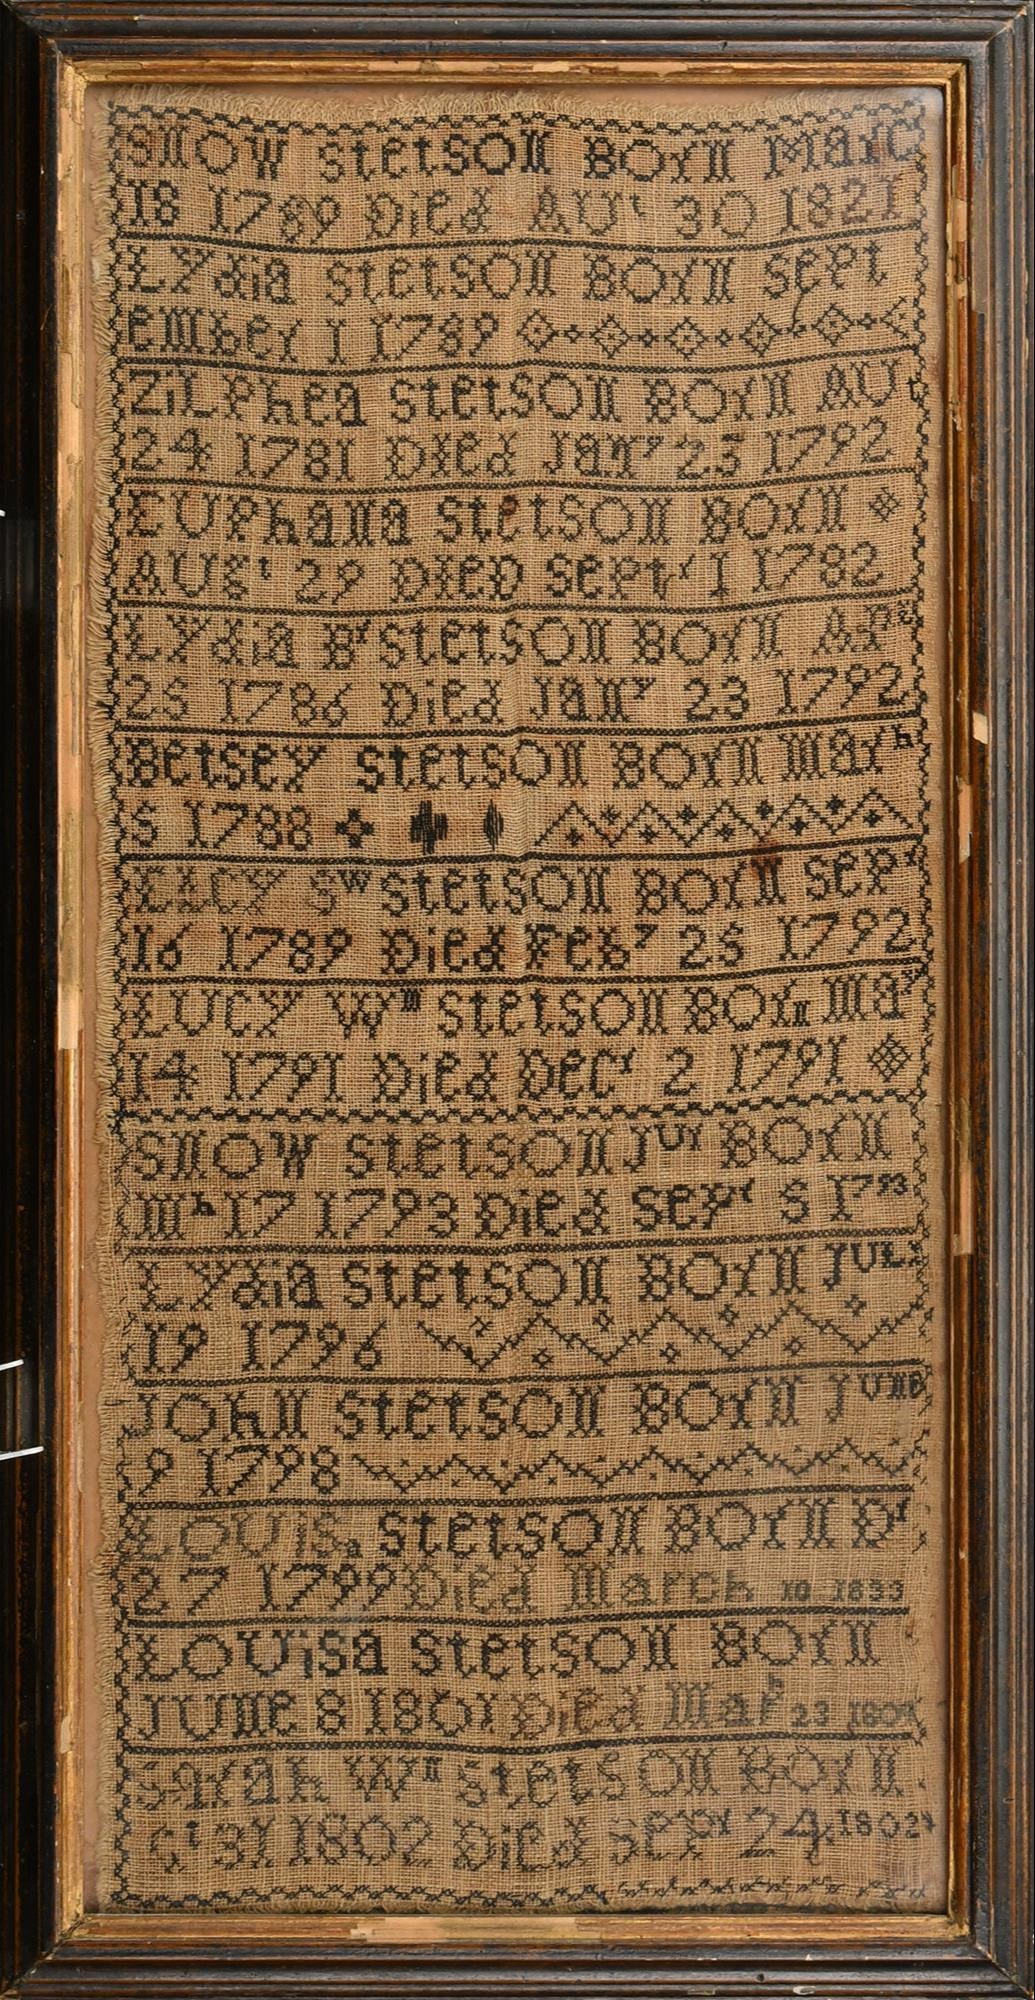 SnOW stetsOn BOrn MarC
18 1789 Died AUt 30 1821
LYdia stetsOn BOrn sept
emBer 1 1789
ZiLPhea stetsOn BOrn AUt
24 1781 DIed Janry 23 1792
EUPhana stetsOn BOrn
AUgt 29 DIED septr 1 1782
LYdia Br stetsOn BOrn APrl
25 1786 Died Jany 23 1792
Betsey stetsOn BOrn marh
5 1788
LUCY Sw stetsOn BOrn sepr
16 1789 Died Feby 25 1792
LUCY Wm stetsOn BOrn may
14 1791 Died Decr 2 1791
SnOW stetsOn JUr BOrn
mh 17 1793 Died sept 5 1793
LYdia stetsOn BOrn JULy
19 1796
JOhn stetsOn BOrn JUne
9 1798
LOUisa stetsOn BOrn Dr
27 1799 Died March 10 1833
LOUisa stetsOn BOrn
JUne 8 1801 Died Mar 23
Sarah Wn stetsOn BOrn
31 1802 Died sepr 24 1802